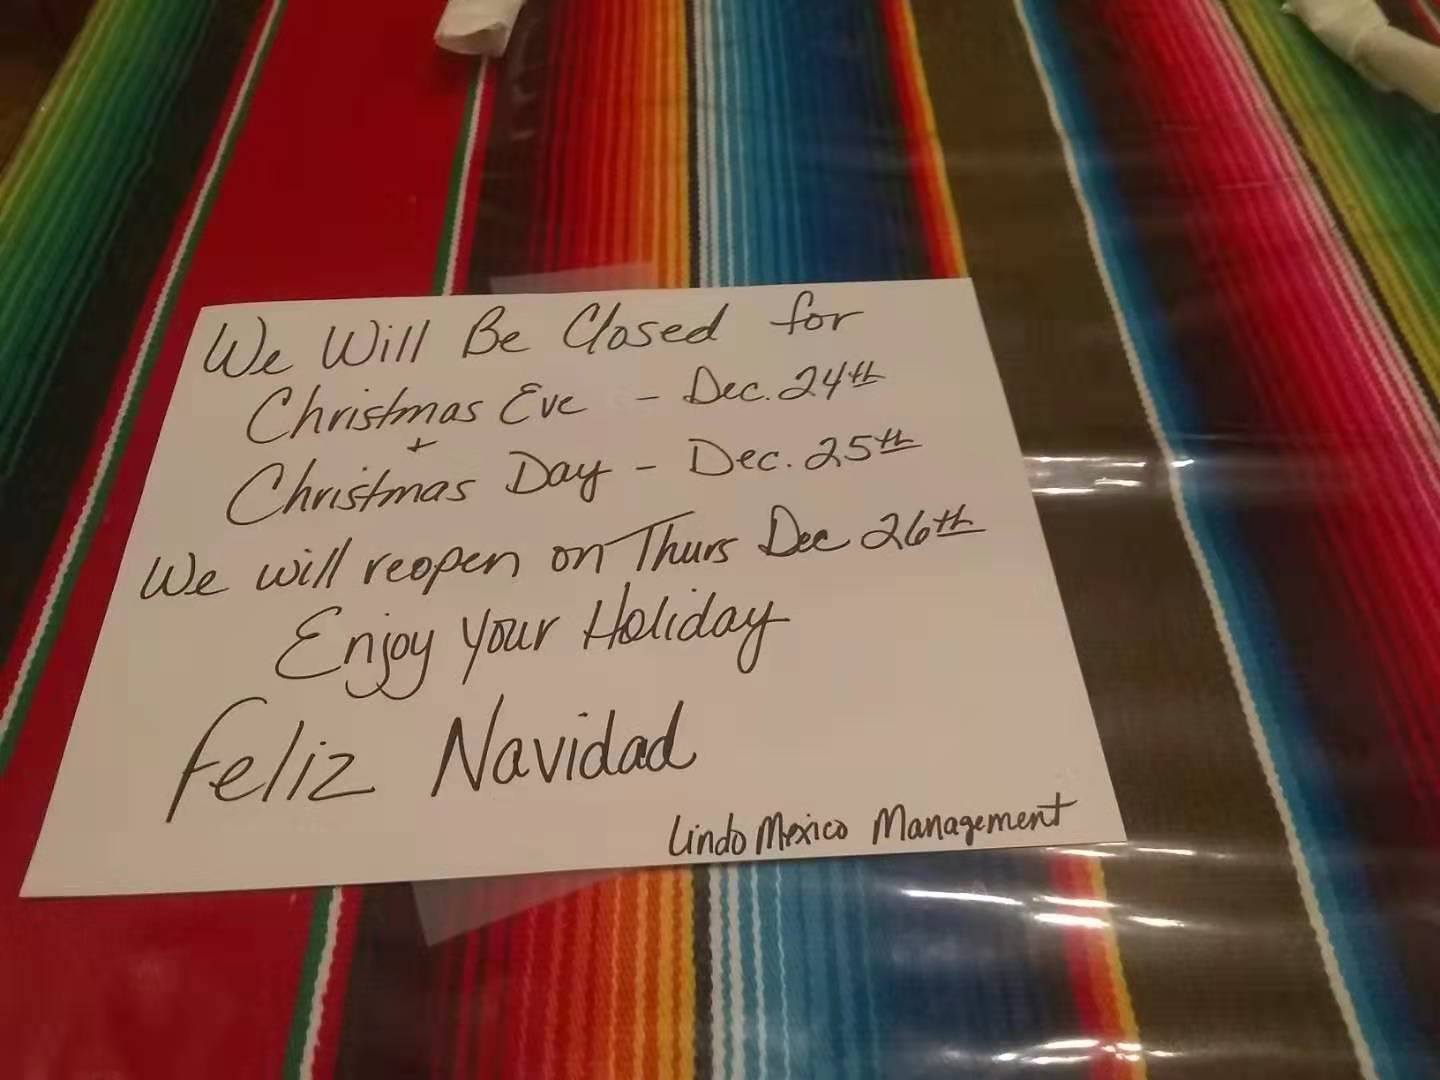 We Will Be Closed for
Christmas Eve - Dec. 24th
+
Christmas Day - Dec. 25th
We will reopen on Thurs Dec 26th
Enjoy Your Holiday
Feliz Navidad
Lindo Mexico Management